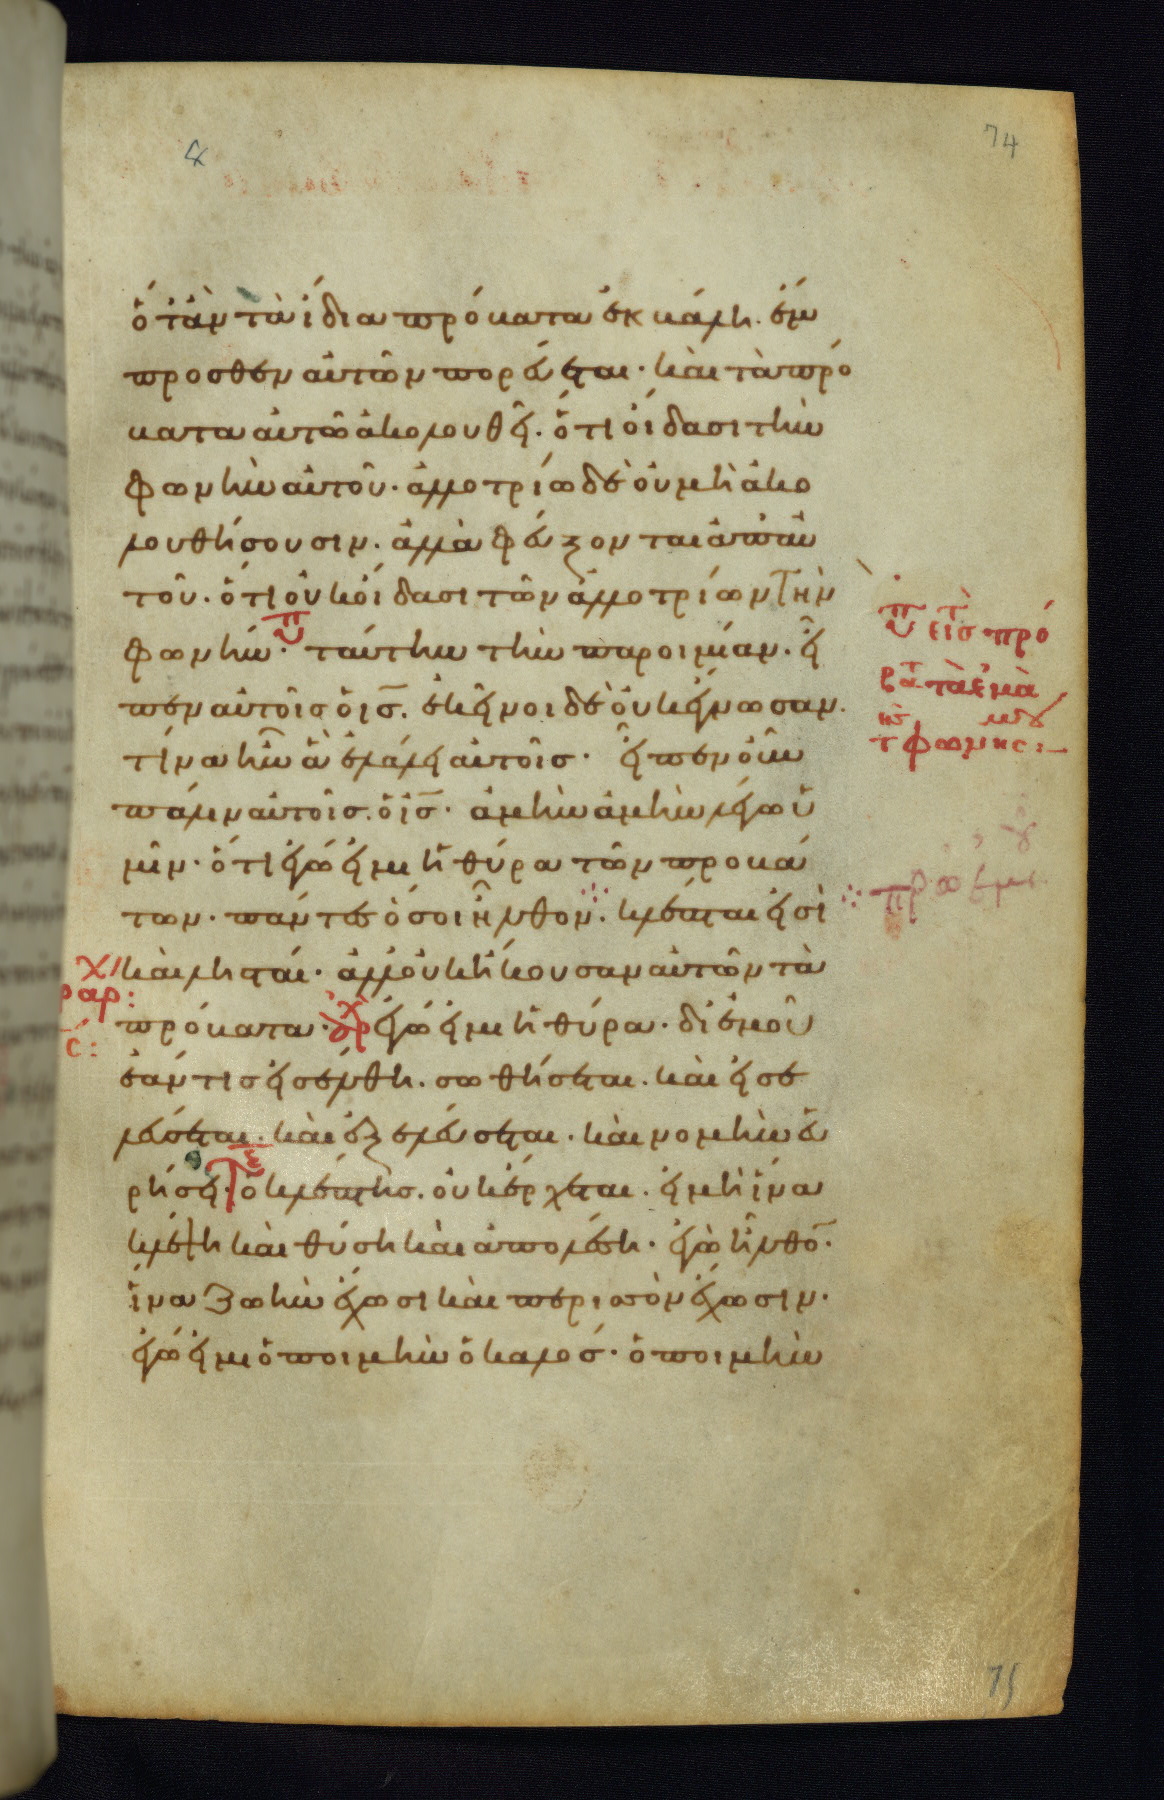 74
ὅταν τὰ ἴδια πρόβατα ἐκβάλη. ἔμ
προσθεν αὐτῶν πορεύεται· καὶ τὰ πρό
βατα αὐτῶ ἀκολουθεῖ. ὅτι οἴδασι τὴν
φωνὴν αὐτοῦ· ἀλλοτρίω δὲ οὐ μὴ ἀκο
λουθήσουσιν. ἀλλὰ φεύξονται ἀπ' αὐ
τοῦ. ὅτι οὐκ οἴδασι τῶν ἀλλοτρίων τὴν
φωνήν· ταύτην τὴν παροιμίαν. εἶ
πεν αὐτοῖς ὁ ις̅. ἐκεῖνοι δὲ οὐκ ἔγνωσαν.
τίνα ἦν ἃ ἐλάλει αὐτοῖς· εἶπεν οὖν
πάλιν αὐτοῖς. ὁ ις̅· ἀμὴν ἀμὴν λέγω ὑ
μῖν· ὅτι ἐγώ εἰμι ἡ θύρα τῶν προβά
των· πάντες ὅσοι ἦλθον. κλέπται εἰσὶ
καὶ λησταί· ἀλλ' οὐκ ἤκουσαν αὐτῶν τὰ
πρόβατα· ἐγώ εἰμι ἡ θύρα· δι' ἐμοῦ
ἐάν τις εἰσέλθη. σωθήσεται. καὶ εἰσε
λεύσεται. καὶ ἐξελεύσεται. καὶ νομὴν εὑ
ρήσει· ὁ κλέπτης. οὐκ ἔρχεται. εἰ μὴ ἵνα
κλέψη καὶ θύση καὶ ἀπολέση· ἐγὼ ἦλθο̅·
ἵνα ζωὴν ἔχωσι καὶ περισσὸν ἔχωσιν.
ἐγώ εἰμι ὁ ποιμὴν ὁ καλός· ὁ ποιμὴν
εἰς πρό
τὰ ἐμὰ
πρὸ ἐμοῦ
75